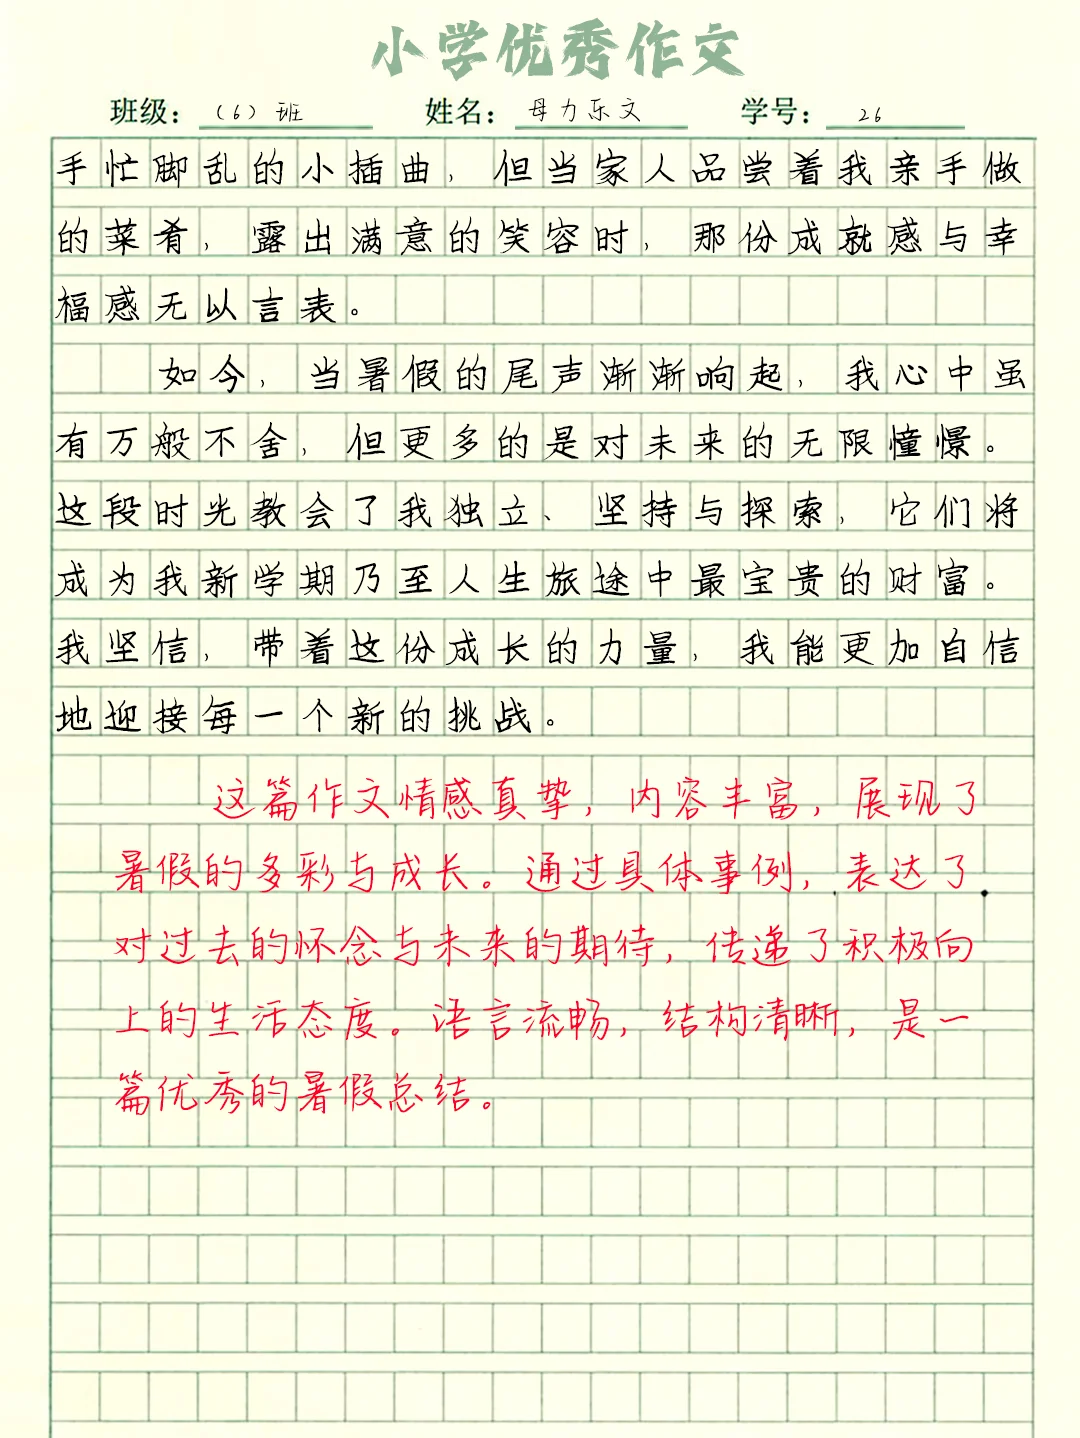 小学优秀作文
班级：（6）班 姓名：母力乐文 学号：26
手忙脚乱的小插曲，但当家人品尝着我亲手做
的菜肴，露出满意的笑容时，那份成就感与幸
福感无以言表。
如今，当暑假的尾声渐渐响起，我心中虽
有万般不舍，但更多的是对未来的无限憧憬。
这段时光教会了我独立、坚持与探索，它们将
成为我新学期乃至人生旅途中最宝贵的财富。
我坚信，带着这份成长的力量，我能更加自信
地迎接每一个新的挑战。
这篇作文情感真挚，内容丰富，展现了
暑假的多彩与成长。通过具体事例，表达了
对过去的怀念与未来的期待，传递了积极向
上的生活态度。语言流畅，结构清晰，是一
篇优秀的暑假总结。